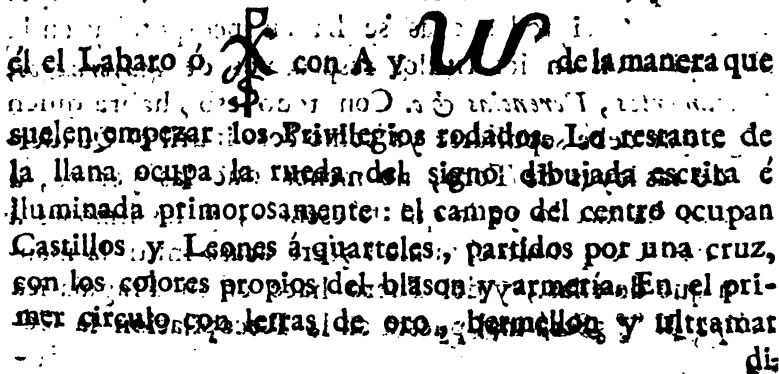 él el Labaro ó, ☧ con A y ω de la manera que
suelen empezar los Privilegios rodados. Lo restante de
la llana ocupa la rueda del signo dibujada escrita é
iluminada primorosamente: el campo del centro ocupan
Castillos y Leones á quarteles, partidos por una cruz,
con los colores propios del blason y armería. En el pri-
mer circulo con letras de oro, bermellon y ultramar
di-